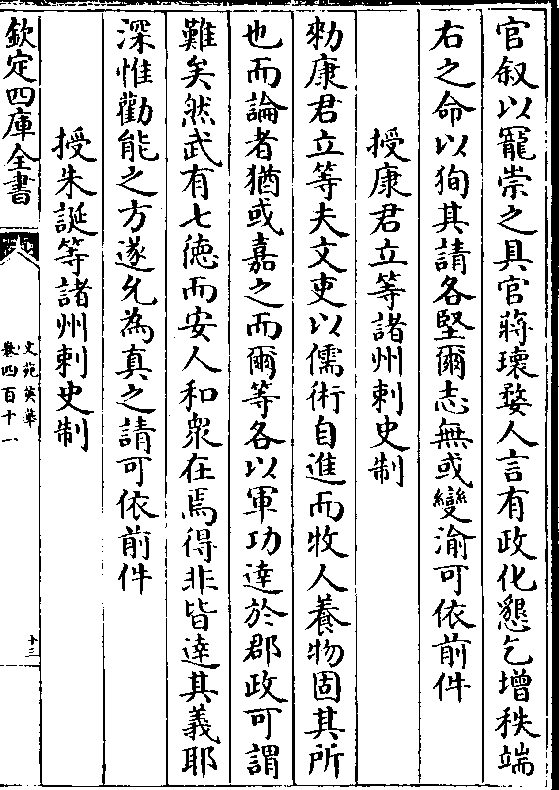 官叙以寵崇之具官蔣瓌婺人言有政化懇乞增秩端
右之命以狥其請各堅爾志無或變渝可依前件
授康君立等諸州刺史制
勑康君立等夫文吏以儒術自進而牧人養物固其所
也而論者猶或嘉之而爾等各以軍功達於郡政可謂
難矣然武有七徳而安人和衆在焉得非皆達其義耶
深惟勸能之方遂允為真之請可依前件
授朱誕等諸州刺史制
欽定四庫全書
文苑英華
卷四百十一
十三